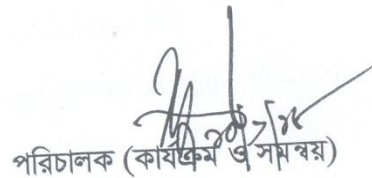 পরিচালক (কার্যক্রম ও সমন্বয়)